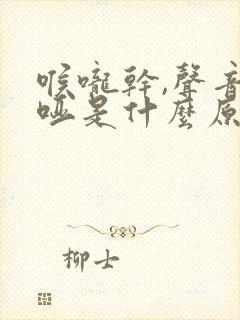 喉嚨幹,聲音
啞是什麼原
柳士